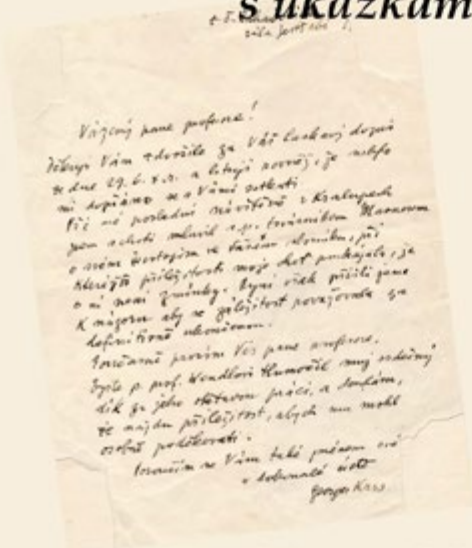 s ukázkam
Vážený pane profesore!
Děkuji Vám zdvořile za Váš laskavý dopis
ze dne 29. 6. t.r. a lituji rovněž, že nebylo
mi dopřáno se s Vámi setkati.
Při mé poslední návštěvě v Kralupech
jsem s chotí mluvil s p. továrníkem
o mém životopise ve slovníku, při
kterýžto příležitosti moje choť poukázala, že
o ní není zmínky. Nyní však přišli jsme
k názoru aby se záležitost považovala za
definitivně skončenou.
Současně prosím Vás pane profesore,
byste p. prof. Wendlovi tlumočil můj srdečný
dík za jeho práci, a doufám,
že najdu příležitost, abych mu mohl
osobně poděkovati.
Poroučím se Vám také jménem své
v dokonalé úctě
Georges Kars